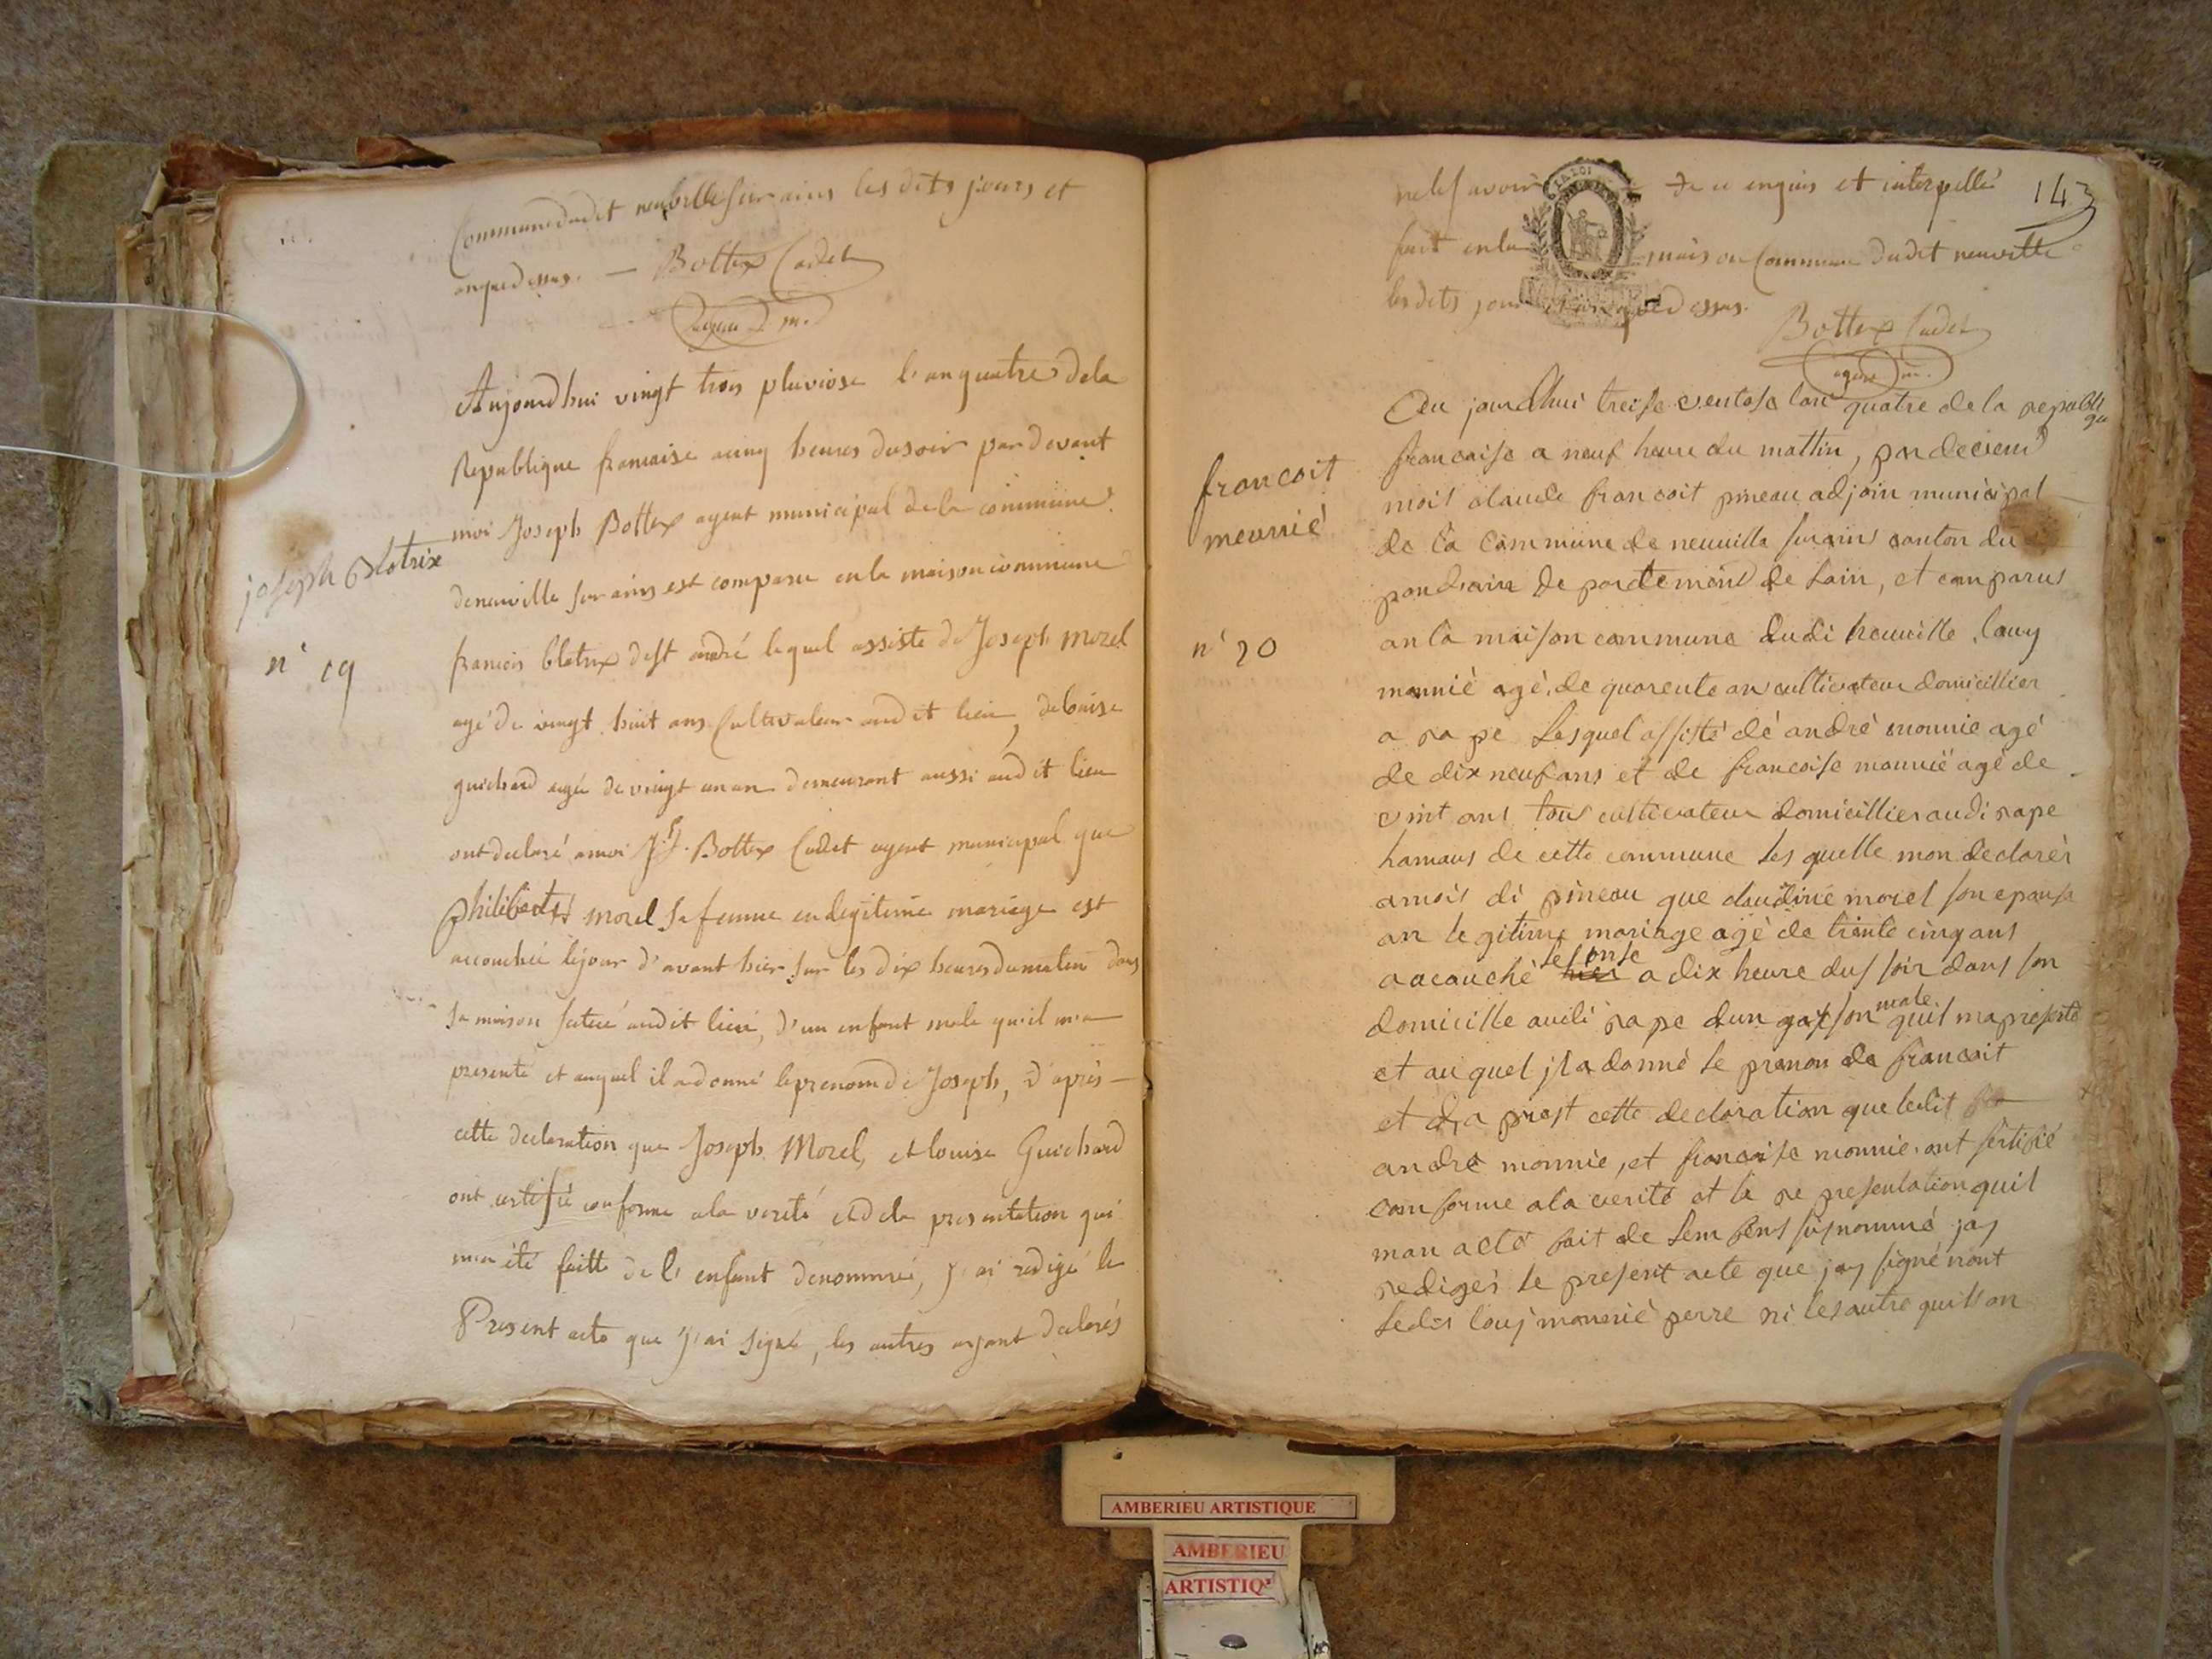 Commune dudit neuville sur ains les dits jours et
an que dessus. — Bottex Cadet
agent m.
Aujourd'hui vingt trois pluviose l'an quatre de la
Republique francaise a cinq heures du soir par devant
moi Joseph Bottex agent municipal de la commune
de neuville sur ains est comparu en la maison commune
joseph Blatrix
n° 19
francois blatrix de st andré lequel assisté de Joseph Morel
agé de vingt huit ans Cultivateur audit lieu, de louise
guichard agée de vingt un an demeurant aussi audit lieu
ont declaré a moi Jh. Bottex Cadet agent municipal que
philiberte morel sa femme en legitime mariage est
accouchée le jour d'avant hier sur les dix heures du matin dans
sa maison située audit lieu, d'un enfant male qu'il m'a
presenté et auquel il a donné le prenom de Joseph, d'après —
cette declaration que Joseph Morel, et louise Guichard
ont certifié conforme a la verité et de la presentation qui
m'a été faitte de l'enfant denommé, j'ai redigé le
Present acte que j'ai signé, les autres ayant declarés
143
ne le savoir de ce enquis et interpellé
fait en la maison Commune dudit neuville
les dits jour et an que dessus.
Bottex Cadet
agent m.
Au jourdhui treise ventose lan quatre de la republi
que
francaise a neuf heure du mattin, par devent
mois claude francoit pineau adjoin municipal
de la commune de neuville surains canton du
pondain de partement de lain, et comparus
francoit
meunié
n° 20
an la maison commune dudi neuville, louy
monnié agé de quarente an cultivateur domicillier
a rape lesquel assisté dé andré monnie agé
de dix neuf ans et de francoise monnié agé de
vint ans tous cultivateur domicillier audi rape
hamaus de cette commune les quelle mon declarér
amois di pineau que claudine morel son epouse
an legitime mariage agé de trente cinq ans
a acouché hier le onse a dix heure dus soir dans son
domicille audi rape dun garson male quil ma presenté
et au quel jl a donné le prenon de francoit
et da prest cette declaration que ledit
andre monnie, et francoise monnie ont sertifié
conforme ala verité et la re presentation quil
man acté fait de lem fens susnommé jay
rediger le present acte que jay signé nont
ledis louj monnié perre ni les autre quil son
AMBERIEU ARTISTIQUE
AMBERIEU
ARTISTIQ